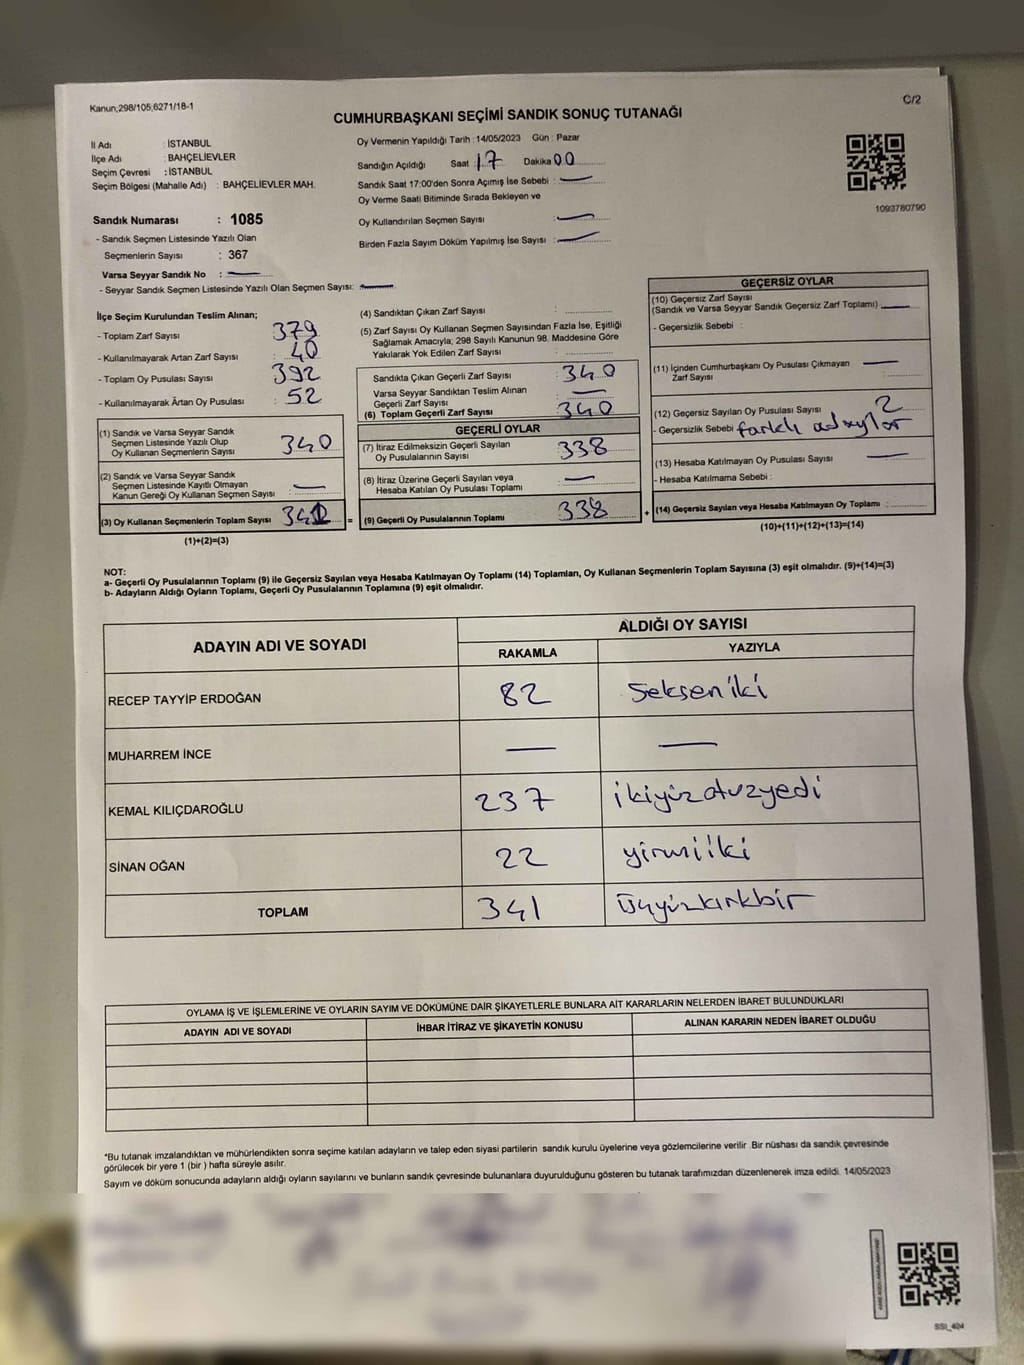 Kanun;298/105,6271/18-1
C/2
CUMHURBAŞKANI SEÇİMİ SANDIK SONUÇ TUTANAĞI
İl Adı : İSTANBUL
İlçe Adı : BAHÇELİEVLER
Seçim Çevresi : İSTANBUL
Seçim Bölgesi (Mahalle Adı) : BAHÇELİEVLER MAH.
Oy Vermenin Yapıldığı Tarih : 14/05/2023 Gün : Pazar
Sandığın Açıldığı Saat : 17 Dakika 00
Sandık Saat 17:00'den Sonra Açımış İse Sebebi : —
Oy Verme Saati Bitiminde Sırada Bekleyen ve
Oy Kullandırılan Seçmen Sayısı : —
Birden Fazla Sayım Döküm Yapılmış İse Sayısı : —
1093780790
Sandık Numarası : 1085
- Sandık Seçmen Listesinde Yazılı Olan
Seçmenlerin Sayısı : 367
Varsa Seyyar Sandık No : —
- Seyyar Sandık Seçmen Listesinde Yazılı Olan Seçmen Sayısı: —
İlçe Seçim Kurulundan Teslim Alınan;
- Toplam Zarf Sayısı : 379
- Kullanılmayarak Artan Zarf Sayısı : 40
- Toplam Oy Pusulası Sayısı : 392
- Kullanılmayarak Artan Oy Pusulası : 52
(1) Sandık ve Varsa Seyyar Sandık
Seçmen Listesinde Yazılı Olup
Oy Kullanan Seçmenlerin Sayısı : 340
(2) Sandık ve Varsa Seyyar Sandık
Seçmen Listesinde Kayıtlı Olmayan
Kanun Gereği Oy Kullanan Seçmen Sayısı : —
(3) Oy Kullanan Seçmenlerin Toplam Sayısı
(1)+(2)=(3)
(4) Sandıktan Çıkan Zarf Sayısı :
(5) Zarf Sayısı Oy Kullanan Seçmen Sayısından Fazla İse, Eşitliği
Sağlamak Amacıyla, 298 Sayılı Kanunun 98. Maddesine Göre
Yakılarak Yok Edilen Zarf Sayısı :
Sandıkta Çıkan Geçerli Zarf Sayısı : 340
Varsa Seyyar Sandıktan Teslim Alınan
Geçerli Zarf Sayısı : —
(6) Toplam Geçerli Zarf Sayısı 340
GEÇERLİ OYLAR
(7) İtiraz Edilmeksizin Geçerli Sayılan
Oy Pusulalarının Sayısı : 338
(8) İtiraz Üzerine Geçerli Sayılan veya
Hesaba Katılan Oy Pusulası Toplamı : —
= (9) Geçerli Oy Pusulalarının Toplamı : 338 +
GEÇERSİZ OYLAR
(10) Geçersiz Zarf Sayısı
(Sandık ve Varsa Seyyar Sandık Geçersiz Zarf Toplamı) —
- Geçersizlik Sebebi :
(11) İçinden Cumhurbaşkanı Oy Pusulası Çıkmayan
Zarf Sayısı : —
(12) Geçersiz Sayılan Oy Pusulası Sayısı : 2
- Geçersizlik Sebebi farklı adaylar
(13) Hesaba Katılmayan Oy Pusulası Sayısı : —
- Hesaba Katılmama Sebebi :
(14) Geçersiz Sayılan veya Hesaba Katılmayan Oy Toplamı :
(10)+(11)+(12)+(13)=(14)
NOT:
a- Geçerli Oy Pusulalarının Toplamı (9) ile Geçersiz Sayılan veya Hesaba Katılmayan Oy Toplamı (14) Toplamları, Oy Kullanan Seçmenlerin Toplam Sayısına (3) eşit olmalıdır. (9)+(14)=(3)
b- Adayların Aldığı Oyların Toplamı, Geçerli Oy Pusulalarının Toplamına (9) eşit olmalıdır.
ADAYIN ADI VE SOYADI ALDIĞI OY SAYISI
RAKAMLA YAZIYLA
RECEP TAYYİP ERDOĞAN 82 seksen iki
MUHARREM İNCE — —
KEMAL KILIÇDAROĞLU 237 ikiyüzotuzyedi
SİNAN OĞAN 22 yirmi iki
TOPLAM 341 üçyüzkırkbir
OYLAMA İŞ VE İŞLEMLERİNE VE OYLARIN SAYIM VE DÖKÜMÜNE DAİR ŞİKAYETLERLE BUNLARA AİT KARARLARIN NELERDEN İBARET BULUNDUKLARI
ADAYIN ADI VE SOYADI İHBAR İTİRAZ VE ŞİKAYETİN KONUSU ALINAN KARARIN NEDEN İBARET OLDUĞU
*Bu tutanak imzalandıktan ve mühürlendikten sonra seçime katılan adayların ve talep eden siyasi partilerin sandık kurulu üyelerine veya gözlemcilerine verilir .Bir nüshası da sandık çevresinde
görülecek bir yere 1 (bir ) hafta süreyle asılır.
Sayım ve döküm sonucunda adayların aldığı oyların sayılarını ve bunların sandık çevresinde bulunanlara duyurulduğunu gösteren bu tutanak tarafımızdan düzenlenerek imza edildi. 14/05/2023
SSI_404